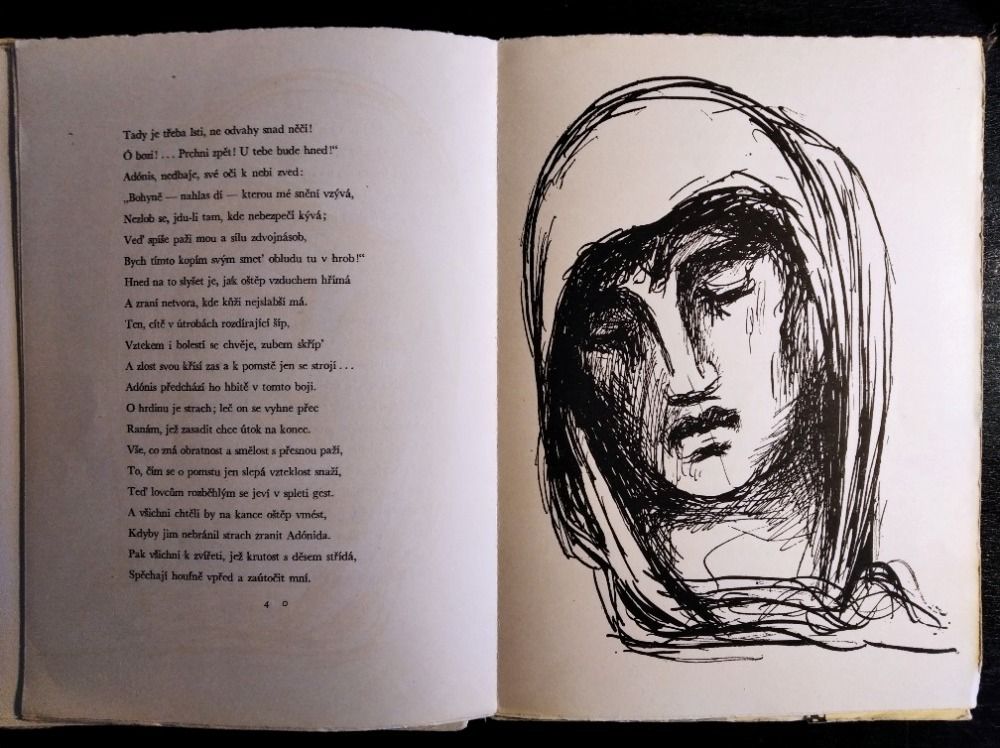 Tady je třeba lsti, ne odvahy snad něčí!
Ó bozi! ... Prchni zpět! U tebe bude hned!“
Adónis, nedbaje, své oči k nebi zved:
„Bohyně — nahlas dí — kterou mé snění vzývá,
Nezlob se, jdu-li tam, kde nebezpečí kývá;
Veď spíše paži mou a sílu zdvojnásob,
Bych tímto kopím svým smet’ obludu tu v hrob!“
Hned na to slyšet je, jak oštěp vzduchem hřímá
A zraní netvora, kde kůži nejslabší má.
Ten, cítě v útrobách rozdírající šíp,
Vztekem i bolestí se chvěje, zubem skříp’
A zlost svou křísí zas a k pomstě jen se strojí ...
Adónis předchází ho hbitě v tomto boji.
O hrdinu je strach; leč on se vyhne přec
Ranám, jež zasadit chce útok na konec.
Vše, co zná obratnost a smělost s přesnou paží,
To, čím se o pomstu jen slepá vzteklost snaží,
Teď lovcům rozběhlým se jeví v spleti gest.
A všichni chtěli by na kance oštěp vmést,
Kdyby jim nebránil strach zranit Adónida.
Pak všichni k zvířeti, jež krutost s děsem střídá,
Spěchají houfně vpřed a zaútočit mní.
4 0